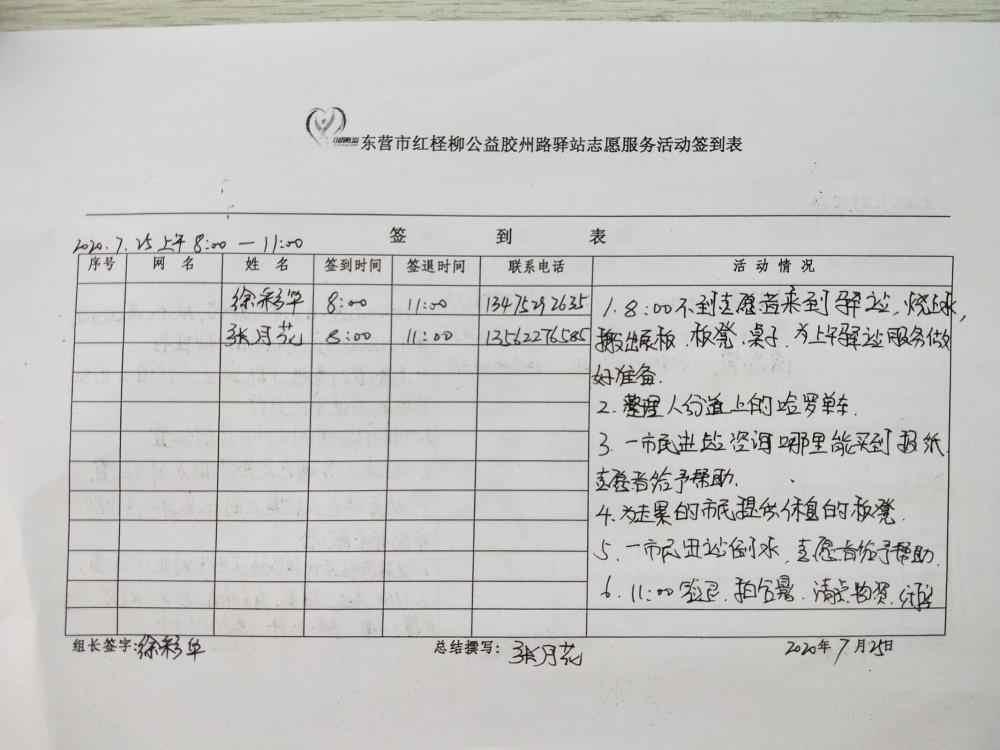 东营市红柽柳公益胶州路驿站志愿服务活动签到表
签 到 表
2020.7.25上午8:00—11:00
序号 网 名 姓 名 签到时间 签退时间 联系电话 活 动 情 况
徐彩华 8:00 11:00 13475292635
张月花 8:00 11:00 13562276585
1.8:00不到志愿者来到驿站,烧上水,
搬出展板、板凳、桌子,为上午驿站服务做
好准备.
2.整理人行道上的哈罗单车.
3.一市民进站咨询哪里能买到报纸
志愿者给予帮助.
4.为走累的市民提供休息的板凳.
5.一市民进站倒水,志愿者给予帮助.
6.11:00签退、拍合影、清点物资、
组长签字:徐彩华 总结撰写:张月花 2020年7月25日